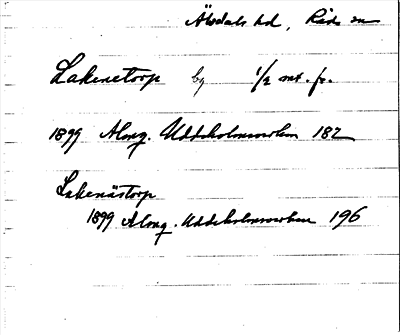 Älvdals hd, Råda sn
Lakenetorp by 1/2 mt. fr.
1899 Almq. Uddeholmsverken 182
Lakenästorp
1899 Almq. Uddeholmsverken 196